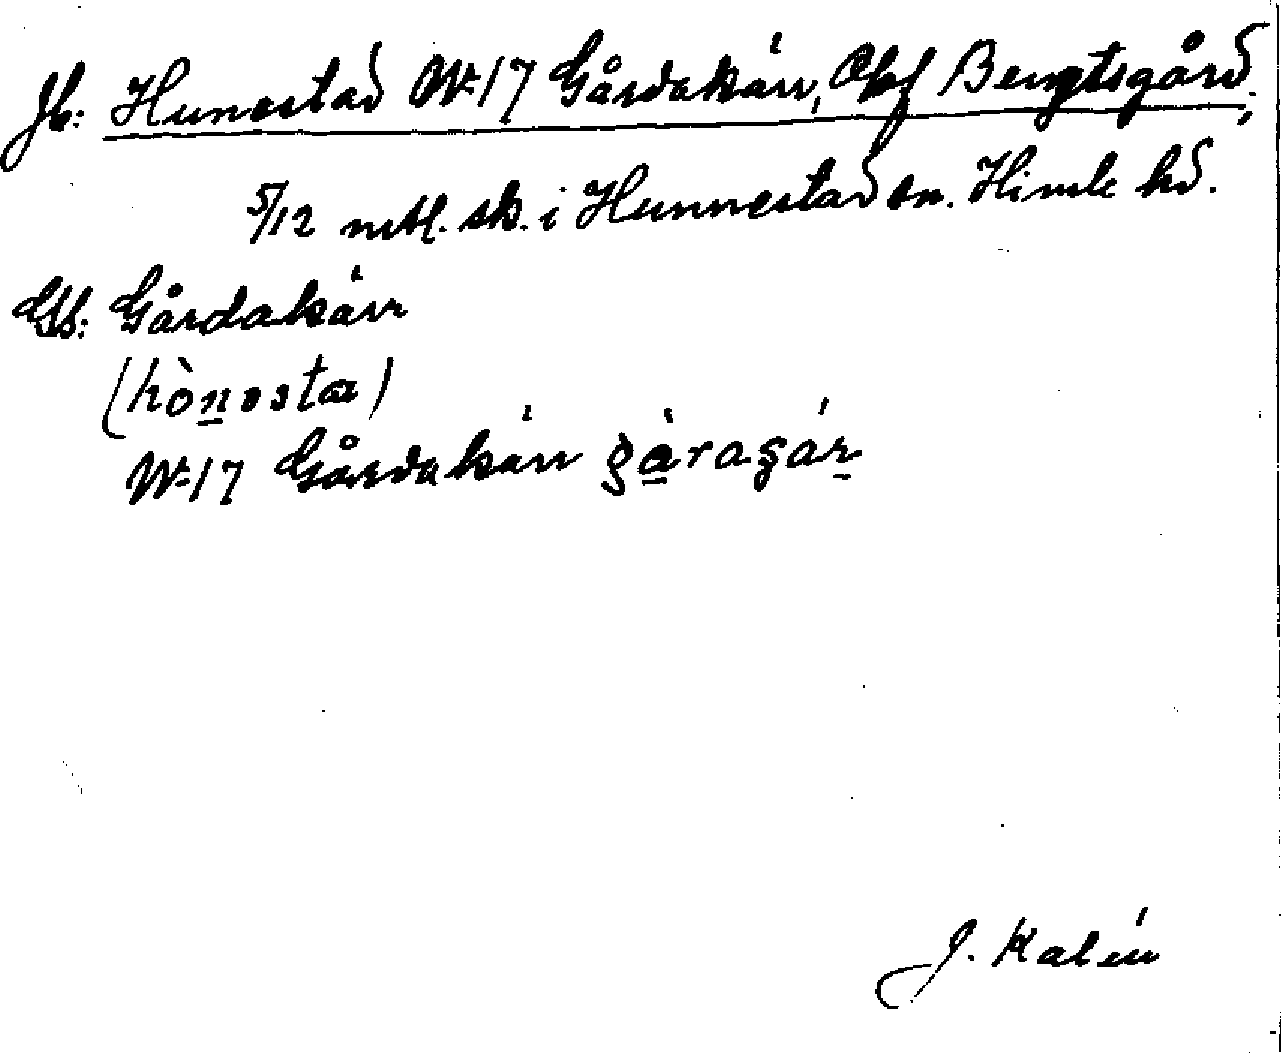 Jb: Hunestad Nr 17 Gårdakärr, Olof Bengtsgård,
5/12 mtl. sk. i Hunnestad sn. Himle hd.
GK: Gårdakärr
(hònosta)
Nr 17 Gårdakärr gàragár
J. Kalén